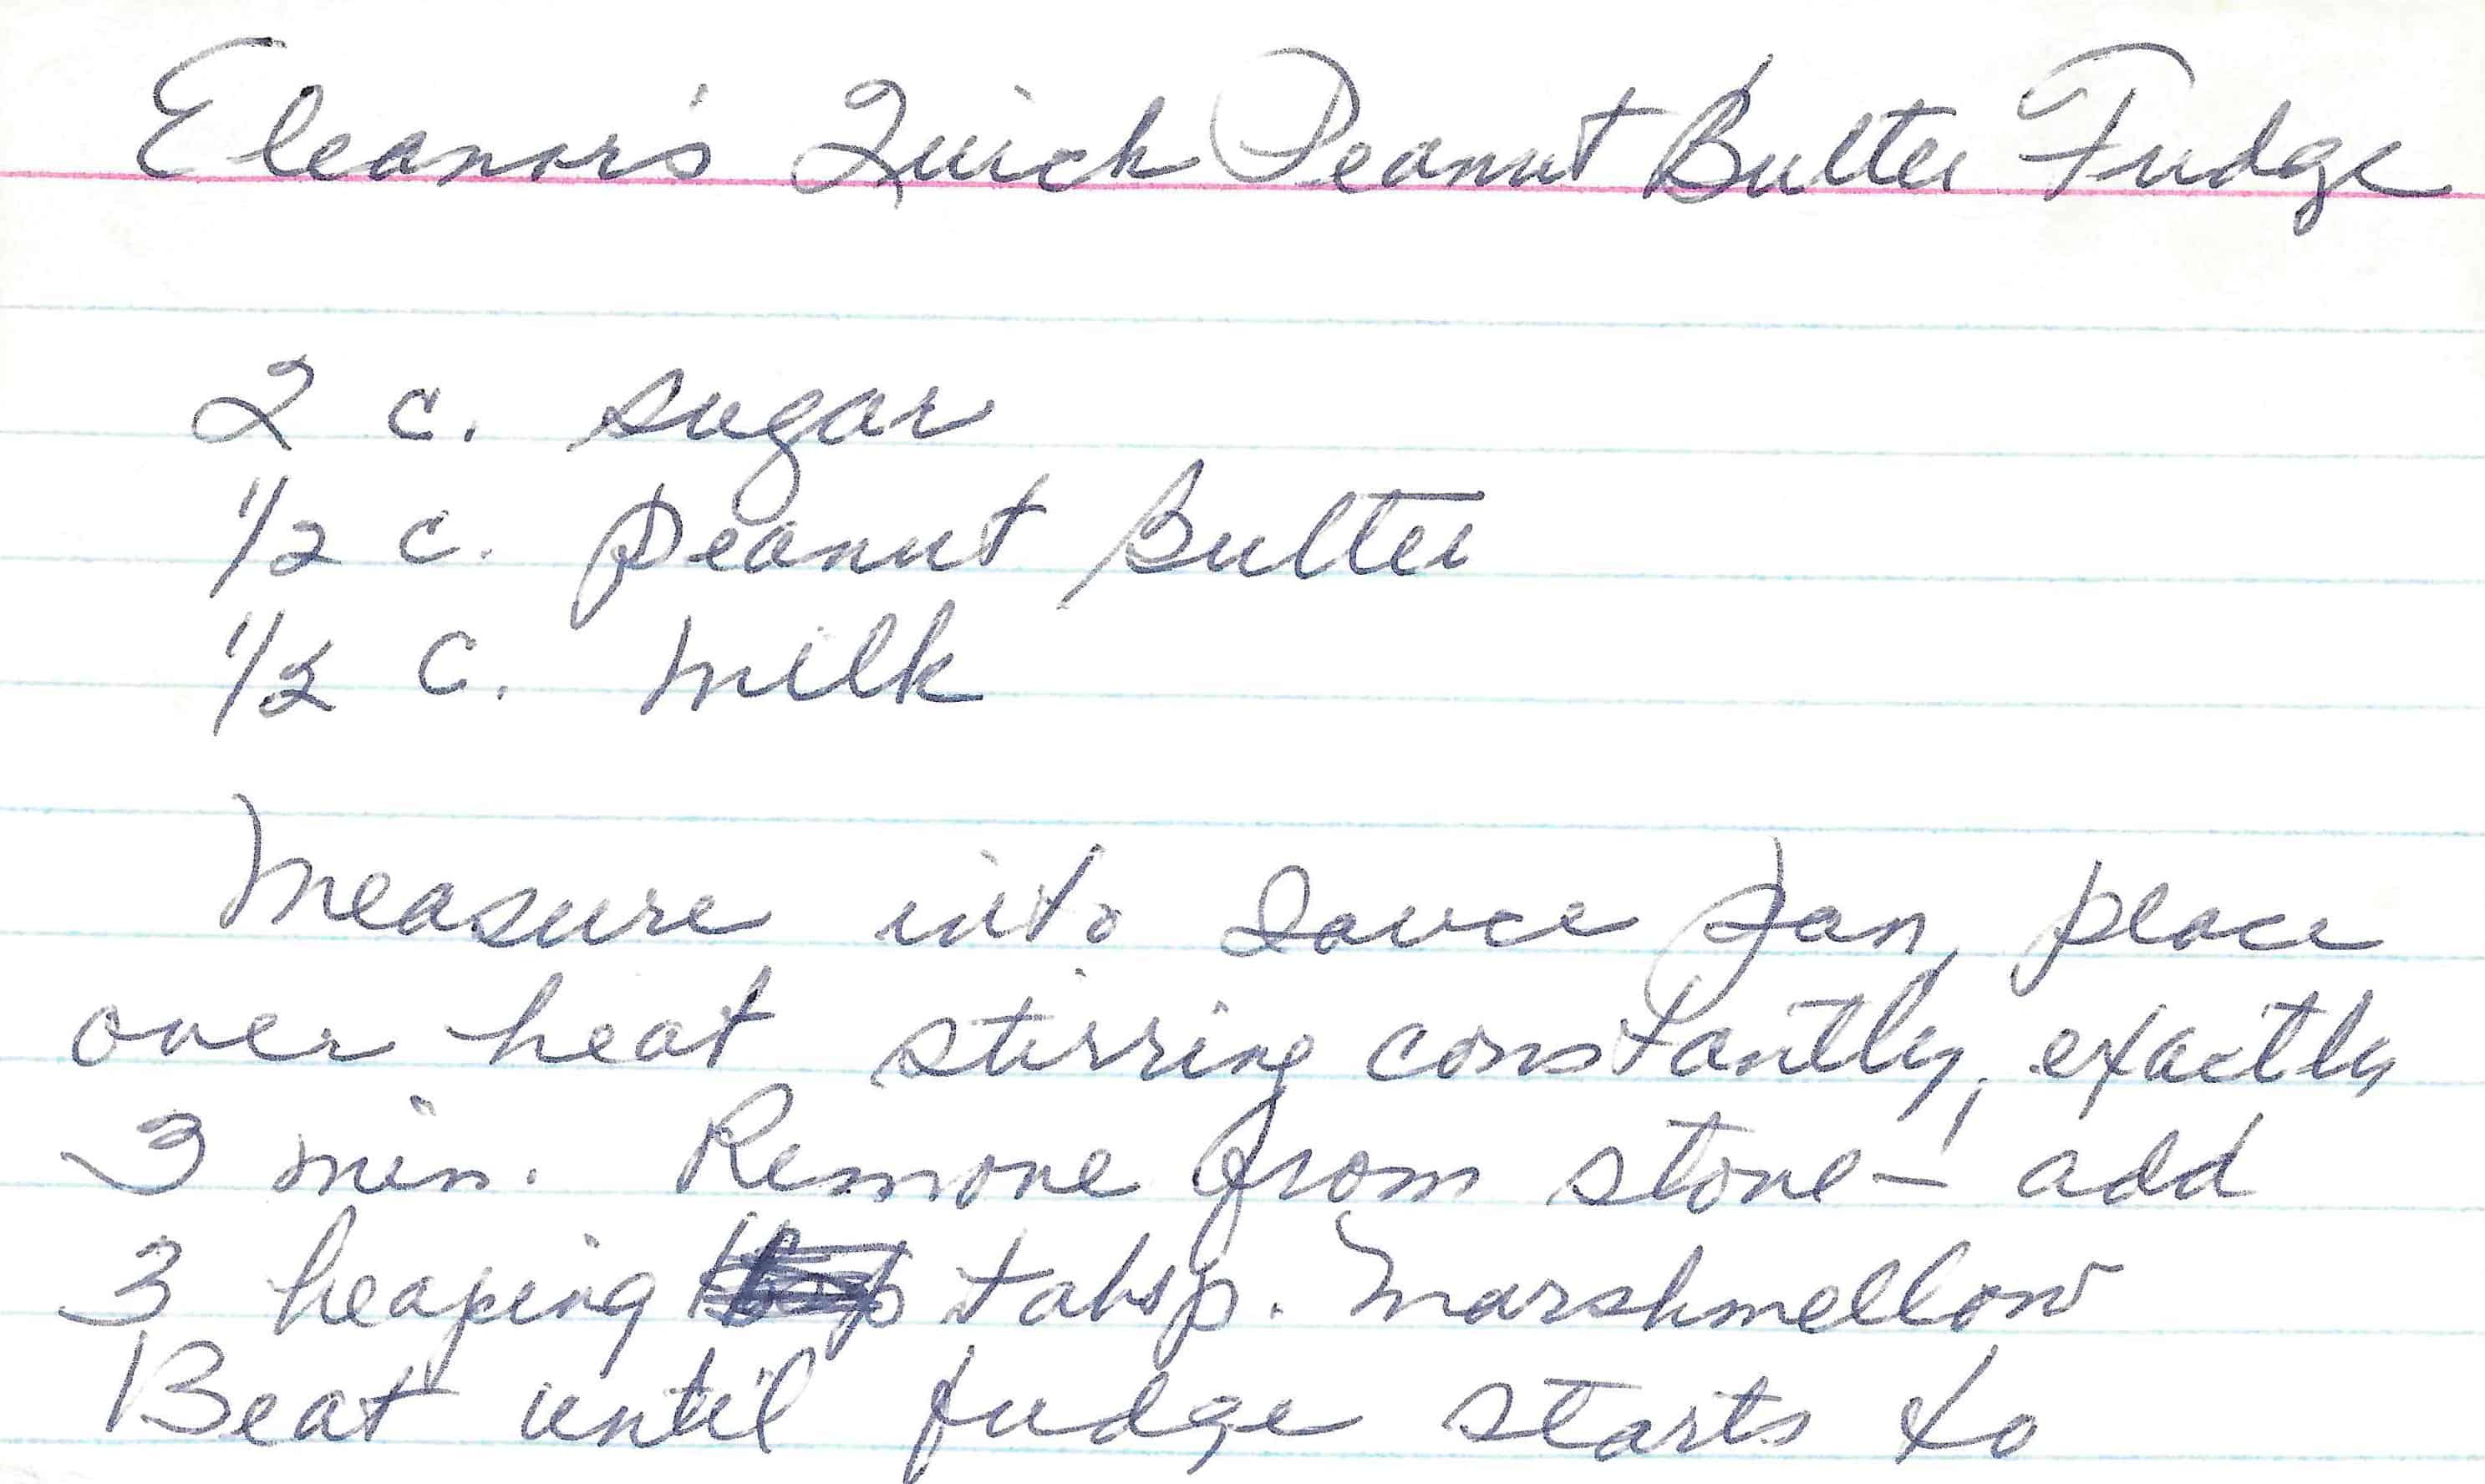 Eleanor's Quick Peanut Butter Fudge
2 c. sugar
1/2 c. peanut butter
1/2 c. milk
Measure into sauce pan, place
over heat stirring constantly, exactly
3 min. Remove from stove - add
3 heaping tabsp. Marshmellow
Beat until fudge starts to